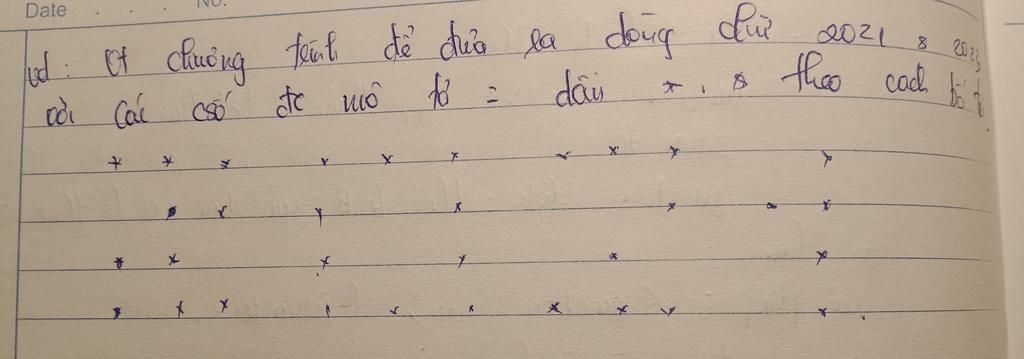 Date . . . No.
vd: Ct chương trình để đưa ra dòng chữ 2021 & 2023
với các csố đc mô tả = dấu *, & theo cách bố
* * * * * * * * * *
* * * * * * *
* * * * * *
* * * * * * * * * *